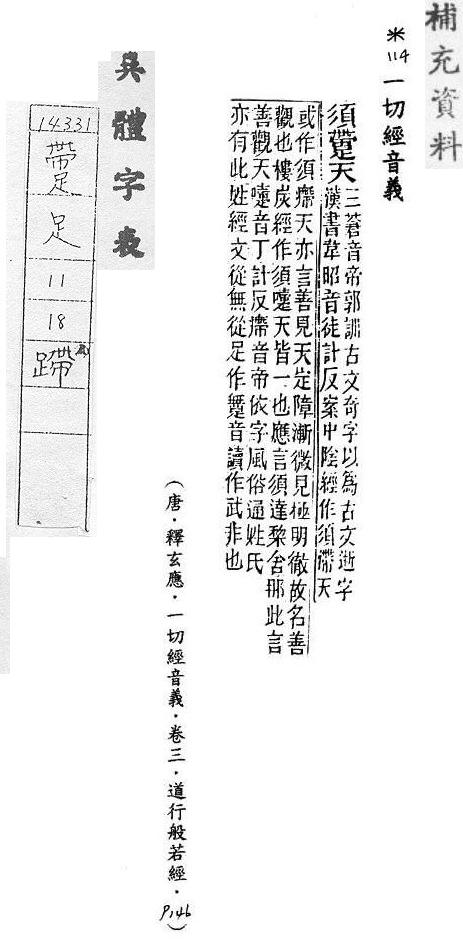 補充資料
米114一切經音義
須𨇾天三蒼音帝郭訓古文奇字以為古文逝字
漢書韋昭音徒計反案中陰經作須𤸪天
或作須㿃天亦言善見天定障漸微見極明徹故名善
觀也樓炭經作須嚏天皆一也應言須達梨舍那此言
善觀天嚏音丁計反㿃音帝依字風俗通姓氏
亦有此姓經文從無從足作躌音讀作武非也
(唐．釋玄應．一切經音義．卷三．道行般若經．P146)
異體字表
14331
足
11
18
蹛